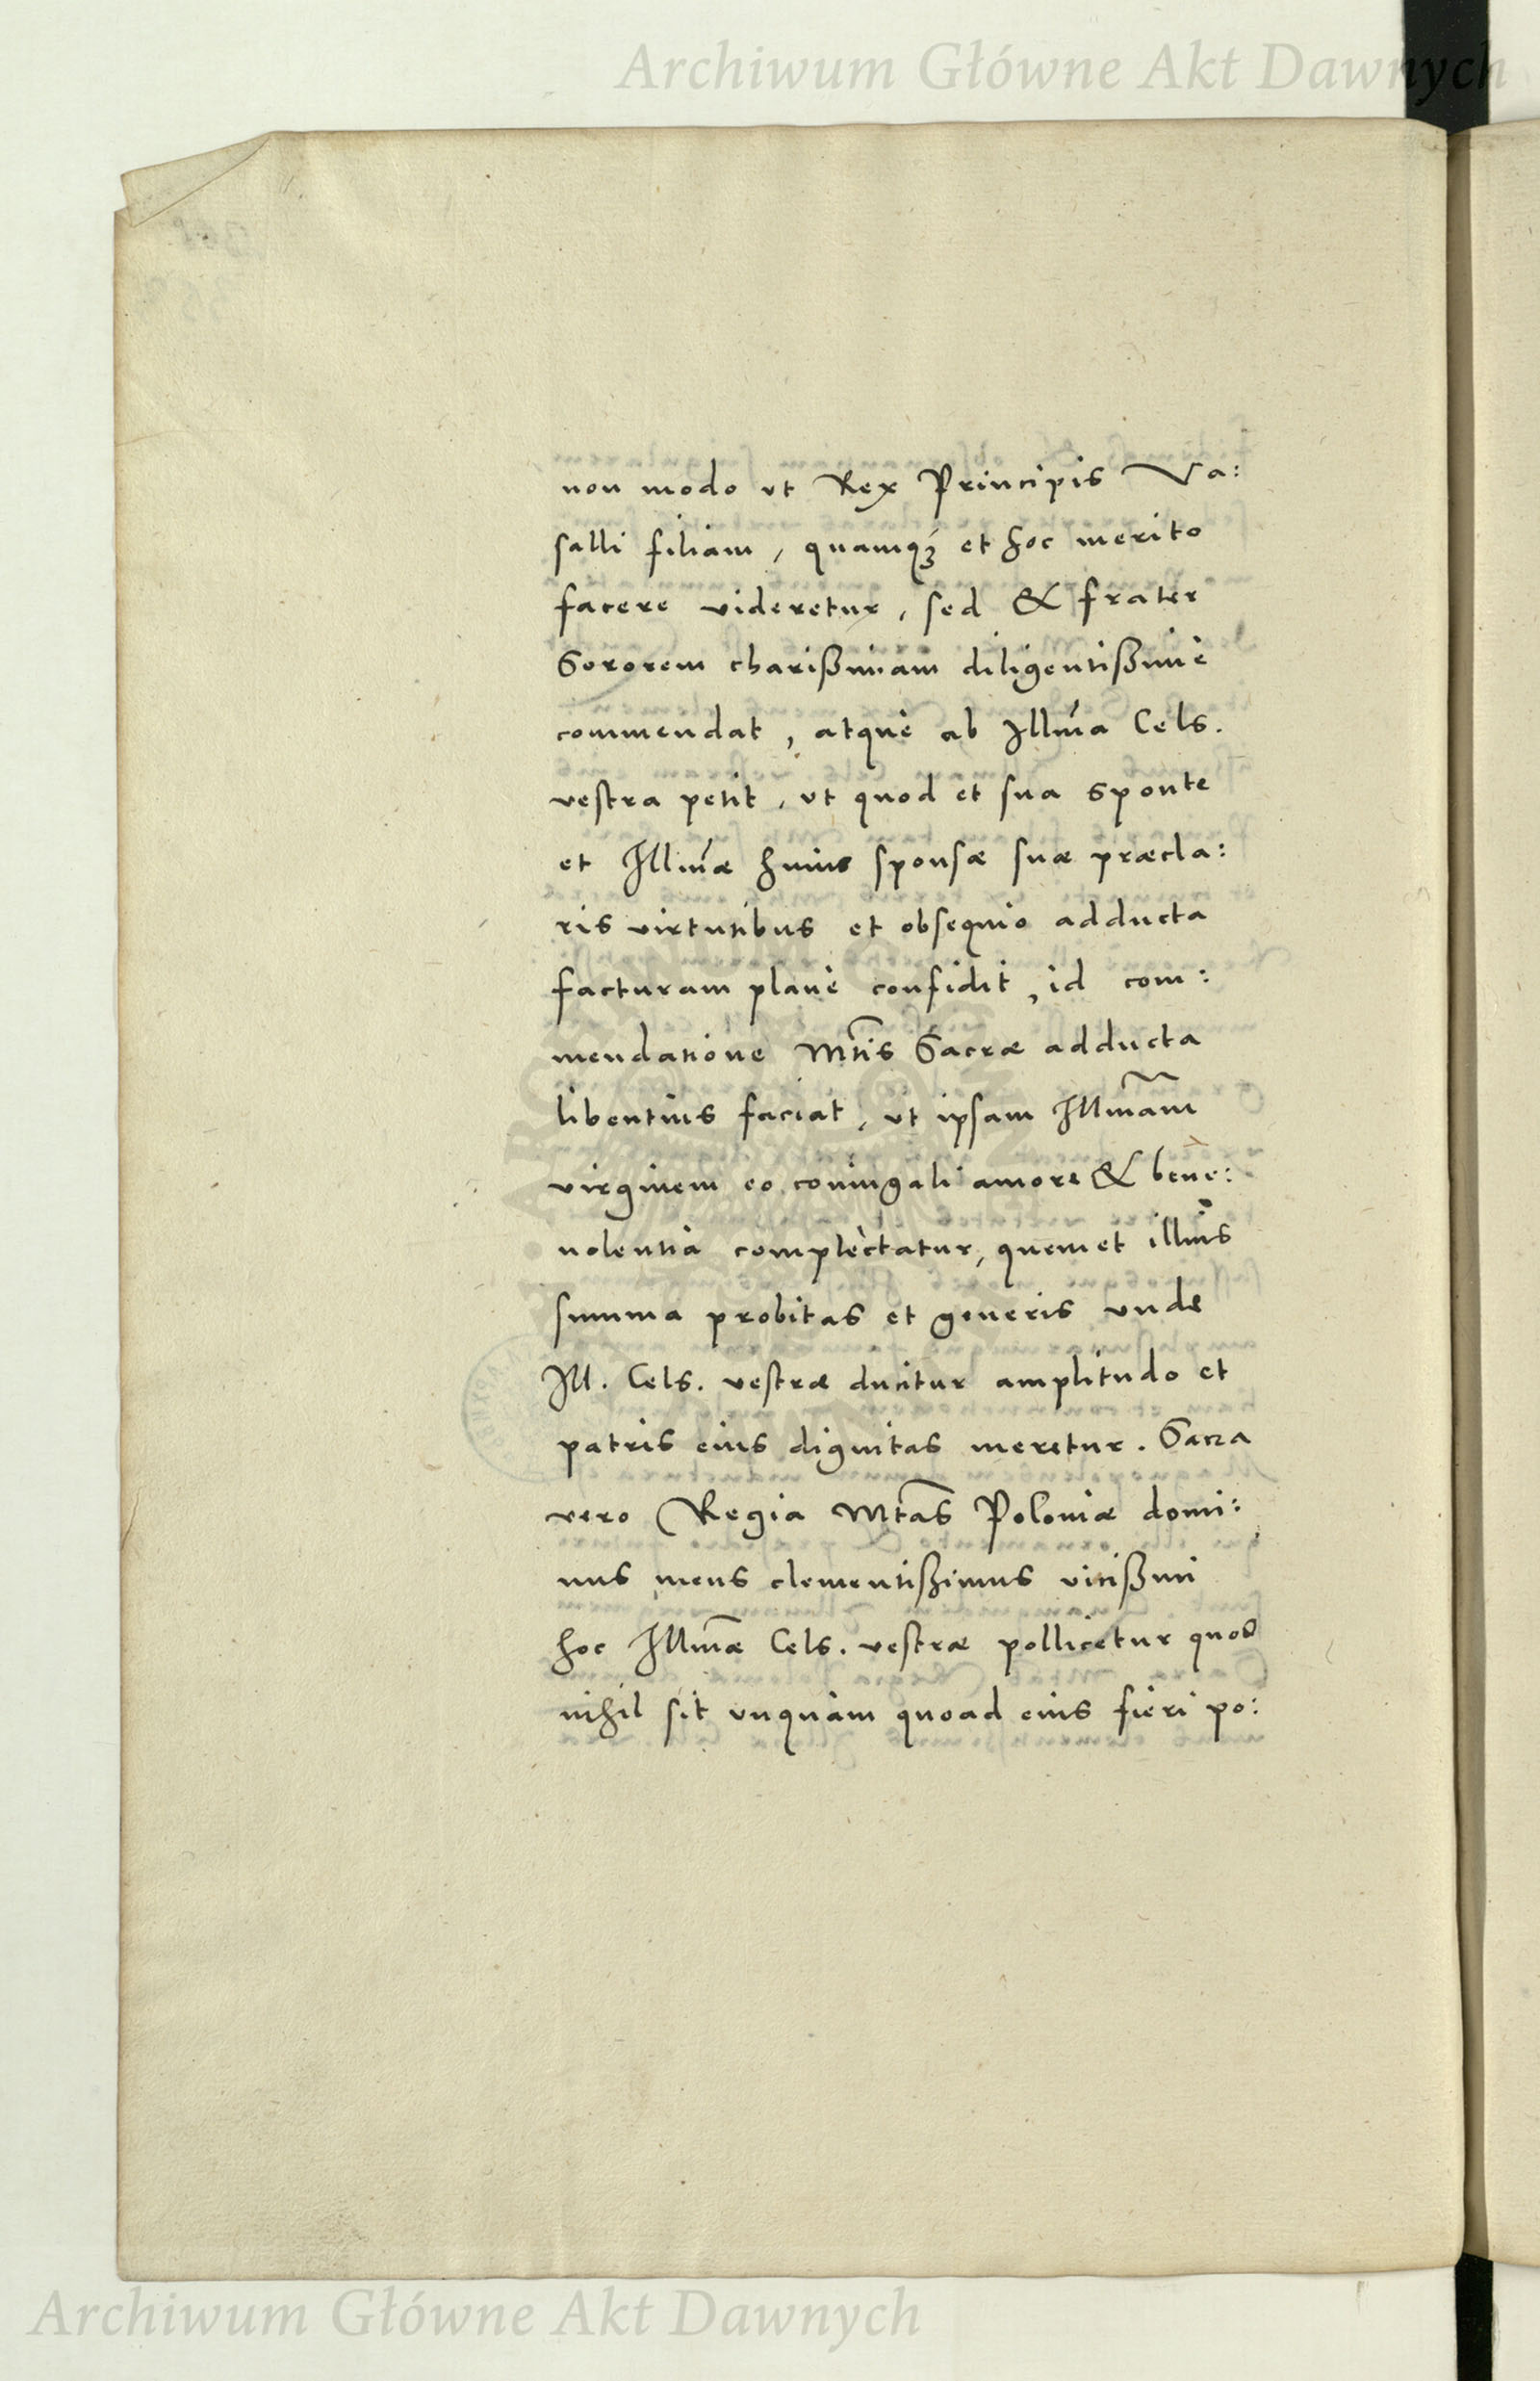 Archiwum Główne Akt Dawnych
non modo vt Rex Principis Va:
salli filiam, quamq́ꝫ et hoc merito
facere videretur, sed & frater
Sororem charißimam diligentißime
commendat, atque ab Illma Cels.
vestra petit, vt quod et sua sponte
et Illmæ huius sponsæ suæ præcla:
ris virtutibus et obsequio adducta
facturam planè confidit, id com:
mendatione Mtis Sacræ adducta
libentius faciat, vt ipsam Illmam
virginem eo coniugali amore & bene:
uolentia complectatur, quem et illius
summa probitas et generis unde
Ill. Cels. vestræ ducitur amplitudo et
patris eius dignitas meretur. Sacra
vero Regia Mtas Poloniæ domi:
nus meus clementißimus vicißim
hoc Illmæ Cels. vestræ pollicetur quod
nihil sit vnquam quoad eius fieri po:
Archiwum Główne Akt Dawnych